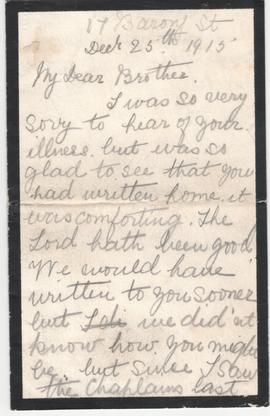 17 Baron St
Decr 25th 1915
My Dear Brother.
I was so very
sory to hear of your
illness. but was so
glad to see that you
had written home. it
was comforting. The
Lord hath been good.
We would have
written to you sooner
but we did'nt
know how you might
be. but since I saw
the Chaplains last